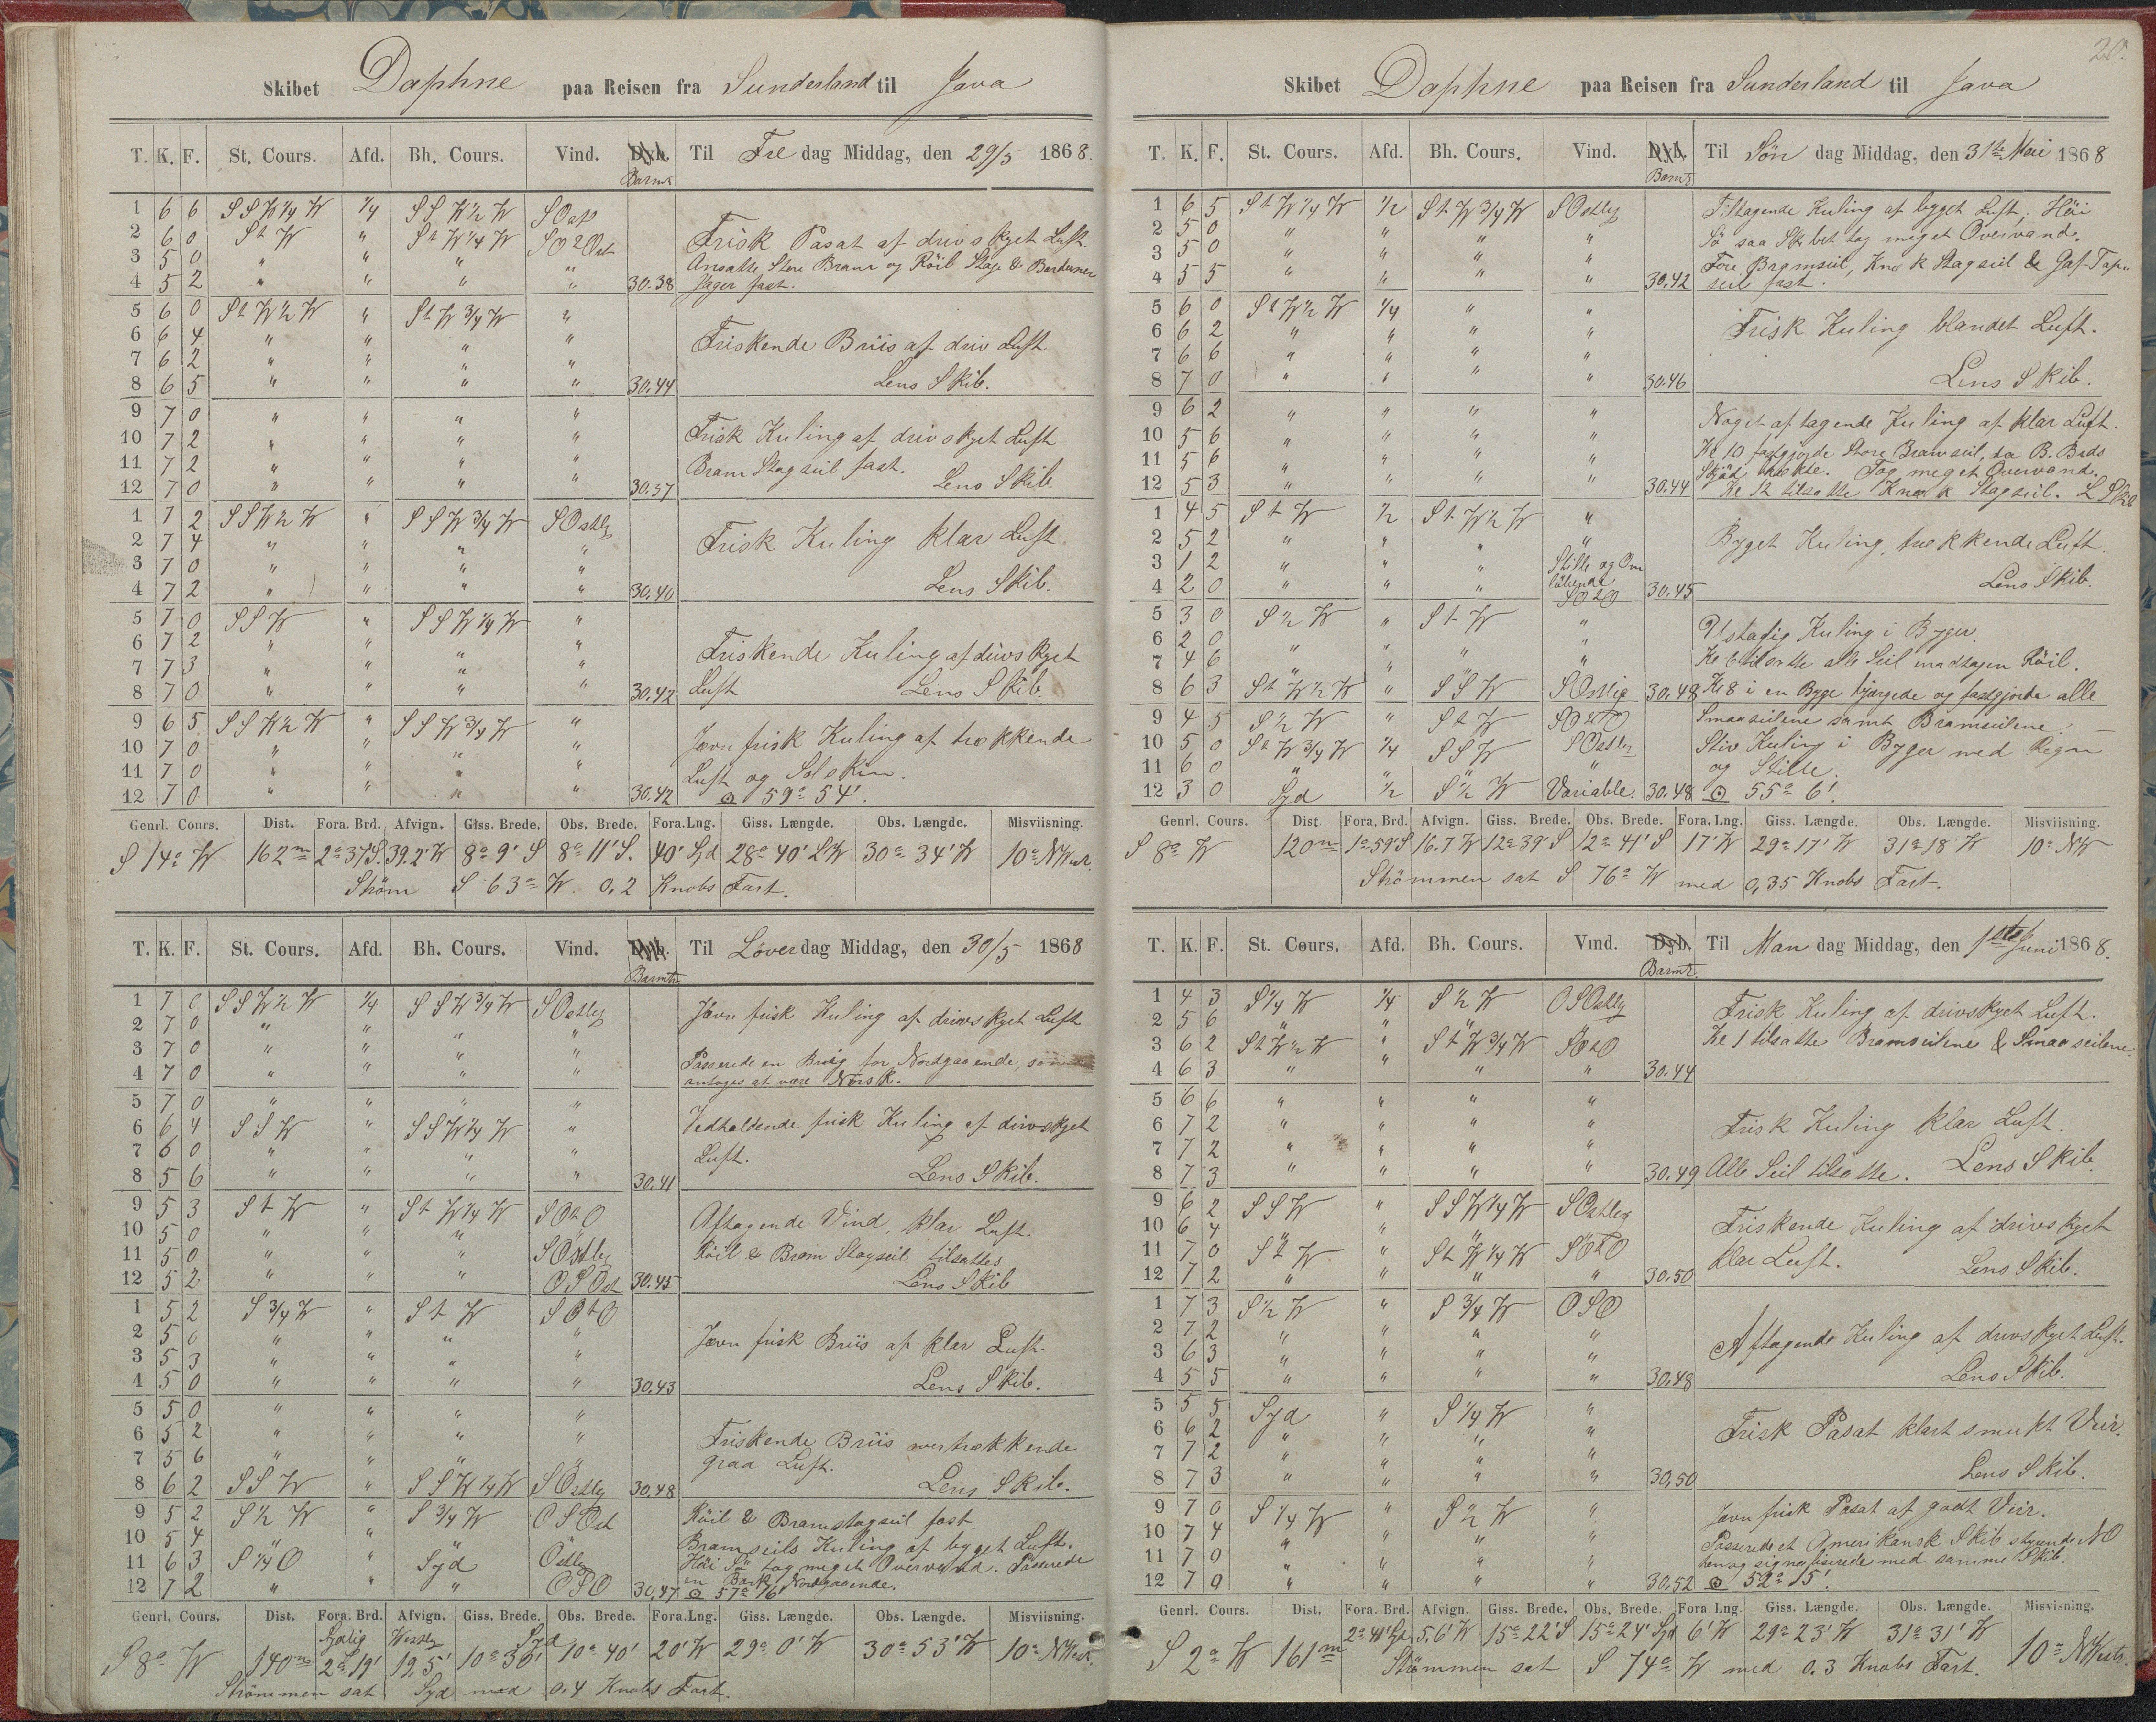 Skibet Daphne paa Reisen fra Sunderland til Java
T. K. F. St. Cours. Afd. Bh. Cours. Vind. Barmtr Til Fre dag Middag, den 29/5 1868.
1 6 6 SSW 1/4 W 1/4 SSW 1/2 W SOost
2 6 0 St W " St W 1/4 W SOtOst Frisk Pasat af drivskyet Luft.
3 5 0 " " " " Ansatte Store Bram og Röil Stage & Barduner
4 5 2 " " " " 30.38 Jager fast.
5 6 0 St W 1/2 W " St W 3/4 W "
6 6 4 " " " " Friskende Briis af driv Luft
7 6 2 " " " "
8 6 5 " " " " 30.44 Lens Skib.
9 7 0 " " " "
10 7 2 " " " " Frisk Kuling af drivskyet Luft
11 7 2 " " " " Bram Stagseil fast.
12 7 0 " " " " 30.37 Lens Skib.
1 7 2 SSW 1/2 W " SSW 3/4 W SOstly
2 7 4 " " " " Frisk Kuling klar Luft
3 7 0 " " " "
4 7 2 " " " " 30.40 Lens Skib.
5 7 0 SSW " SSW 1/4 W "
6 7 2 " " " " Friskende Kuling af drivskyet
7 7 3 " " " "
8 7 0 " " " " 30.42 Luft Lens Skib.
9 6 5 SSW 1/2 W " SSW 3/4 W "
10 7 0 " " " " Jævn frisk Kuling af trækkende
11 7 0 " " " " Luft og Solskin.
12 7 0 " " " " 30.42 ⊙ 59° 54'.
Genrl. Cours. Dist. Fora. Brd. Afvign. Giss. Brede. Obs. Brede. Fora. Lng. Giss. Længde. Obs. Længde. Misviisning.
S 14° W 162 m 2° 37' S. 39.2' W 8° 9' S 8° 11' S. 40' 28° 40' W 30° 34' W 10° NWest.
Ström S 63° W. 0,2 Knobs Fart.
T. K. F. St. Cours. Afd. Bh. Cours. Vind. Barmtr. Til Löver dag Middag, den 30/5 1868
1 7 0 SSW 1/2 W 1/4 SSW 3/4 W SOstly Jævn frisk Kuling af drivskyet Luft
2 7 0 " " " "
3 7 0 " " " " Passerede en Brig for Nordgaaende, som
4 7 0 " " " " antoges at være Norsk.
5 7 0 " " " "
6 6 4 SSW " SSW 1/4 W " Vedholdende frisk Kuling af drivskyet
7 6 0 " " " " Luft.
8 5 6 " " " " 30.41 Lens Skib.
9 5 3 St W " St W 1/4 W SOtO Aftagende Vind, klar Luft.
10 5 0 " " " "
11 5 0 " " " SOstly Röil & Bram Stagseil tilsattes
12 5 2 " " " OSOst 30.45 Lens Skib
1 5 2 S 3/4 W " St W SOtO
2 5 0 " " " " Jævn frisk Briis af klar Luft.
3 5 3 " " " "
4 5 0 " " " " 30.43 Lens Skib.
5 5 0 " " " "
6 5 2 " " " " Friskende Briis overtrækkende
7 5 6 " " " " graa Luft.
8 6 2 SSW " SSW 1/4 W SOstly 30.48 Lens Skib.
9 5 2 S 1/2 W " S 3/4 W OSOst Röil & Bramstagseil fast.
10 5 4 " " " " Bramseils Kuling af byget Luft.
11 6 3 S 1/4 O " Syd Ostly Höi Sö tog meget Overvand. Passerede
12 7 2 " " " OSO 30.47 en Bark Nordgaaende. ⊙ 57° 16'
Genrl. Cours. Dist. Fora. Brd. Afvign. Giss. Brede. Obs. Brede. Fora. Lng. Giss. Længde. Obs. Længde. Misviisning.
S 8° W 140 m Sydlig 2° 19' Westly 19,5' 10° 30' Syd 10° 40' 20' W 29° 0' W 30° 53' W 10° NWest
Strömmen sat Syd med 0.4 Knobs Fart.
20.
Skibet Daphne paa Reisen fra Sunderland til Java
T. K. F. St. Cours. Afd. Bh. Cours. Vind. Barmtr Til Sön dag Middag, den 31te Mai 1868
1 6 5 St W 1/4 W 1/2 St W 3/4 W SOstly Tiltagende Kuling af byget Luft, Höi
2 5 0 " " " " Sö saa Skibet tog meget Overvand.
3 5 0 " " " " Fore Bramseil, Stagseil & Gaf-Top-
4 5 5 " " " " 30.42 seil fast.
5 6 0 St W 1/2 W 1/4 " "
6 6 2 " " " " Frisk Kuling blandet Luft.
7 6 6 " " " "
8 7 0 " " " " 30.46 Lens Skib.
9 6 2 " " " " Noget aftagende Kuling af klar Luft.
10 5 6 " " " " Kl 10 fastgjorde Store Bramseil, da B. Bords
11 5 6 " " " " Skjöt brækte. Tog meget Overvand.
12 5 3 " " " " 30.44 Kl 12 tilsatte Stagseil. L Skib
1 4 5 St W 1/2 St W 1/2 W "
2 5 2 " " " " Byget Kuling, trækkende Luft.
3 1 2 " " " Stille og Om
4 2 0 " " " löbende SOtO 30.45 Lens Skib.
5 3 0 S 1/2 W " St W " Ustadig Kuling i Byger.
6 2 0 " " " "
7 4 6 " " " " Kl 6 tilsatte alle Seil undtagen Röil.
8 6 3 St W 1/2 W " SSW SOstlig 30.48 Kl 8 i en Byge bjergede og fastgjorde alle
9 4 5 S 1/2 W " St W SOtO Smaaseilene samt Bramseilene.
10 5 0 St W 3/4 W 1/4 SSW SOstly Stiv Kuling i Byger med Regn
11 6 0 " " " og Stille.
12 3 0 Syd 1/2 S 1/2 W Variable. 30.48 ⊙ 55° 6'.
Genrl. Cours. Dist Fora. Brd. Afvign. Giss. Brede. Obs. Brede. Fora. Lng. Giss. Længde. Obs. Længde. Misviisning.
S 8° W 120 m 1° 59' S 16.7 W 12° 39' S 12° 41' S 17' W 29° 17' W 31° 18 W 10° NW
Strömmen sat S 76° W med 0,35 Knobs Fart.
T. K. F. St. Cours. Afd. Bh. Cours. Vind. Barmtr. Til Man dag Middag, den 1ste Juni 1868.
1 4 3 S 1/4 W 1/4 S 1/2 W OSOstly Frisk Kuling af drivskyet Luft.
2 5 6 " " " "
3 6 2 St W 1/2 W " St W 3/4 W SOtO Kl 1 tilsatte Bramseilene & Smaaseilene.
4 6 3 " " " " 30.44
5 6 6 " " " "
6 7 2 " " " " Frisk Kuling klar Luft.
7 7 2 " " " "
8 7 3 " " " " 30.49 Alle Seil tilsatte. Lens Skib.
9 6 2 SSW " SSW 1/4 W SOstly
10 6 4 " " " " Friskende Kuling af drivskyet
11 7 0 St W " St W 1/4 W SOtO klar Luft.
12 7 2 " " " " 30.50 Lens Skib.
1 7 3 S 1/2 W " S 3/4 W OSO
2 7 2 " " " " Aftagende Kuling af drivskyet Luft.
3 6 3 " " " "
4 5 5 " " " " 30.48 Lens Skib.
5 5 5 Syd " S 1/4 W "
6 6 2 " " " " Frisk Pasat klart smukt Veir.
7 7 2 " " " "
8 7 3 " " " " 30,50 Lens Skib.
9 7 0 S 1/4 W " S 1/2 W " Jævn frisk Pasat af godt Veir.
10 7 4 " " " " Passerede et Amerikansk Skib styrende NO
11 7 0 " " " " hen og signaliserede med samme Skib.
12 7 0 " " " " 30.52 ⊙ 52° 15'.
Genrl. Cours. Dist. Fora. Brd. Afvign. Giss. Brede. Obs. Brede. Fora Lng. Giss. Længde. Obs. Længde. Misvisning.
S 2° W 161 m 2° 41' Syd 5,6' W 15° 22' S 15° 24' Syd 6' W 29° 23' W 31° 31' W 10° NWestr.
Strömmen sat S 74° W med 0.3 Knobs Fart.